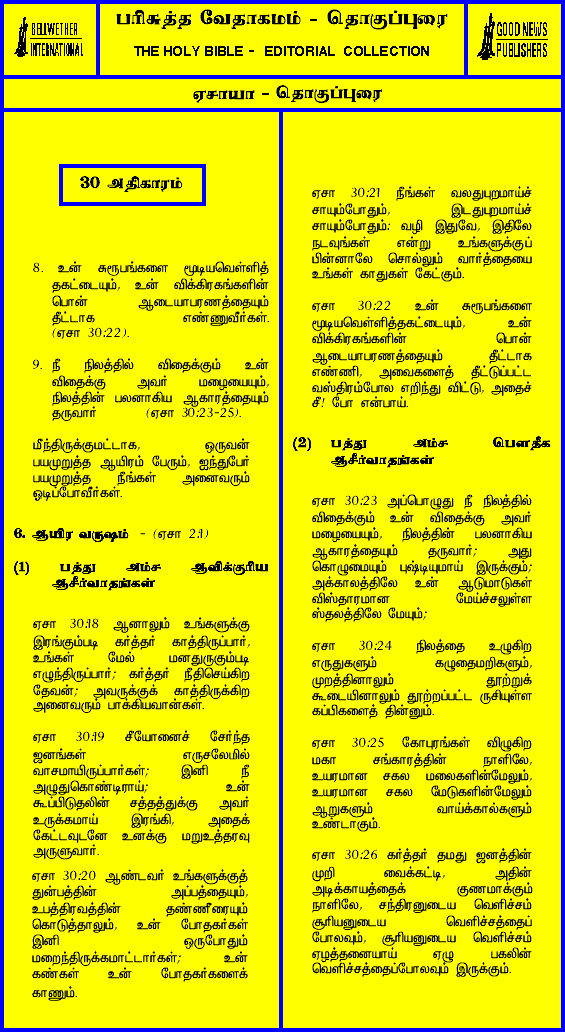 BELLWETHER
INTERNATIONAL
பரிசுத்த வேதாகமம் - தொகுப்புரை
THE HOLY BIBLE - EDITORIAL COLLECTION
GOOD NEWS
PUBLISHERS
ஏசாயா - தொகுப்புரை
30 அதிகாரம்
8. உன் சுரூபங்களை மூடியவெள்ளித்
தகட்டையும், உன் விக்கிரகங்களின்
பொன் ஆடையாபரணத்தையும்
தீட்டாக எண்ணுவீர்கள்.
(ஏசா 30:22).
9. நீ நிலத்தில் விதைக்கும் உன்
விதைக்கு அவர் மழையையும்,
நிலத்தின் பலனாகிய ஆகாரத்தையும்
தருவார் (ஏசா 30:23-25).
மீந்திருக்குமட்டாக, ஒருவன்
பயமுறுத்த ஆயிரம் பேரும், ஐந்துபேர்
பயமுறுத்த நீங்கள் அனைவரும்
ஓடிப்போவீர்கள்.
6. ஆயிர வருஷம் - (ஏசா 2:1)
(1) பத்து அம்ச ஆவிக்குரிய
ஆசீர்வாதங்கள்
ஏசா 30:18 ஆனாலும் உங்களுக்கு
இரங்கும்படி கர்த்தர் காத்திருப்பார்,
உங்கள் மேல் மனதுருகும்படி
எழுந்திருப்பார்; கர்த்தர் நீதிசெய்கிற
தேவன்; அவருக்குக் காத்திருக்கிற
அனைவரும் பாக்கியவான்கள்.
ஏசா 30:19 சீயோனைச் சேர்ந்த
ஜனங்கள் எருசலேமில்
வாசமாயிருப்பார்கள்; இனி நீ
அழுதுகொண்டிராய்; உன்
கூப்பிடுதலின் சத்தத்துக்கு அவர்
உருக்கமாய் இரங்கி, அதைக்
கேட்டவுடனே உனக்கு மறுஉத்தரவு
அருளுவார்.
ஏசா 30:20 ஆண்டவர் உங்களுக்குத்
துன்பத்தின் அப்பத்தையும்,
உபத்திரவத்தின் தண்ணீரையும்
கொடுத்தாலும், உன் போதகர்கள்
இனி ஒருபோதும்
மறைந்திருக்கமாட்டார்கள்; உன்
கண்கள் உன் போதகர்களைக்
காணும்.
ஏசா 30:21 நீங்கள் வலதுபுறமாய்ச்
சாயும்போதும், இடதுபுறமாய்ச்
சாயும்போதும்: வழி இதுவே, இதிலே
நடவுங்கள் என்று உங்களுக்குப்
பின்னாலே சொல்லும் வார்த்தையை
உங்கள் காதுகள் கேட்கும்.
ஏசா 30:22 உன் சுரூபங்களை
மூடியவெள்ளித்தகட்டையும், உன்
விக்கிரகங்களின் பொன்
ஆடையாபரணத்தையும் தீட்டாக
எண்ணி, அவைகளைத் தீட்டுப்பட்ட
வஸ்திரம்போல எறிந்து விட்டு, அதைச்
சீ! போ என்பாய்.
(2) பத்து அம்ச பௌதீக
ஆசீர்வாதங்கள்
ஏசா 30:23 அப்பொழுது நீ நிலத்தில்
விதைக்கும் உன் விதைக்கு அவர்
மழையையும், நிலத்தின் பலனாகிய
ஆகாரத்தையும் தருவார்; அது
கொழுமையும் புஷ்டியுமாய் இருக்கும்;
அக்காலத்திலே உன் ஆடுமாடுகள்
விஸ்தாரமான மேய்ச்சலுள்ள
ஸ்தலத்திலே மேயும்;
ஏசா 30:24 நிலத்தை உழுகிற
எருதுகளும் கழுதைமறிகளும்,
முறத்தினாலும் தூற்றுக்
கூடையினாலும் தூற்றப்பட்ட ருசியுள்ள
கப்பிகளைத் தின்னும்.
ஏசா 30:25 கோபுரங்கள் விழுகிற
மகா சங்காரத்தின் நாளிலே,
உயரமான சகல மலைகளின்மேலும்,
உயரமான சகல மேடுகளின்மேலும்
ஆறுகளும் வாய்க்கால்களும்
உண்டாகும்.
ஏசா 30:26 கர்த்தர் தமது ஜனத்தின்
முறி வைக்கட்டி, அதின்
அடிக்காயத்தைக் குணமாக்கும்
நாளிலே, சந்திரனுடைய வெளிச்சம்
சூரியனுடைய வெளிச்சத்தைப்
போலவும், சூரியனுடைய வெளிச்சம்
ஏழத்தனையாய் ஏழு பகலின்
வெளிச்சத்தைப்போலவும் இருக்கும்.